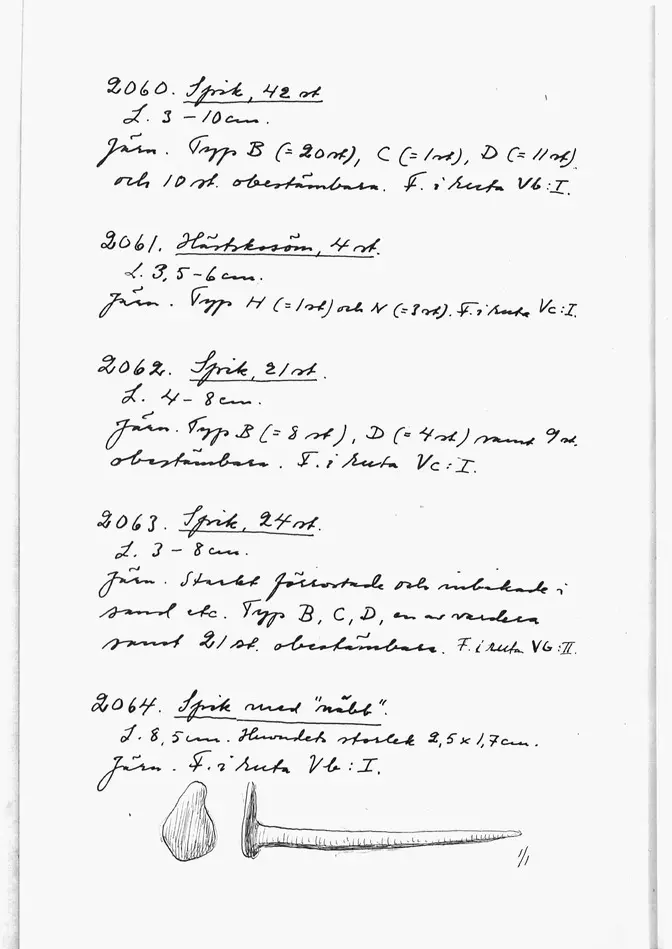 2060. Spik, 42 st
L. 3 - 10 cm.
Järn. Typ B (= 20 st), C (= 1 st), D (= 11 st)
och 10 st. obestämbara. F. i ruta Vb:I.
2061. Hästskosöm, 4 st.
L. 3,5 - 6 cm.
Järn. Typ H (= 1 st) och N (= 3 st). F. i ruta Vc:I.
2062. Spik, 21 st.
L. 4 - 8 cm.
Järn. Typ B (= 8 st), D (= 4 st) samt 9 st.
obestämbara. F. i ruta Vc:I.
2063. Spik, 24 st.
L. 3 - 8 cm.
Järn. Starkt förrostade och inbakade i
sand etc. Typ B, C, D, en av vardera
samt 21 st. obestämbara. F. i ruta Vb:II.
2064. Spik med "näbb".
L. 8,5 cm. Huvudets storlek 2,5 x 1,7 cm.
Järn. F. i ruta Vb:I.
1/1